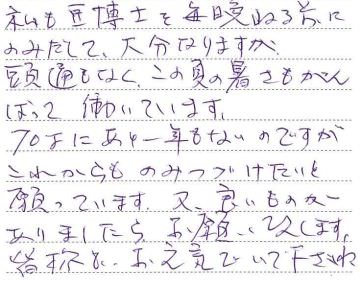 私も豆博士を毎晩ねる前に
のみだして、大分なりますが、
頭痛もなく、この夏の暑さもがん
ばって働いています。
70才にあと一年もないのですが
これからものみつづけたいと
願っています。又、良いものが
ありましたらお願い致します。
皆様も、お元気でいて下さいね